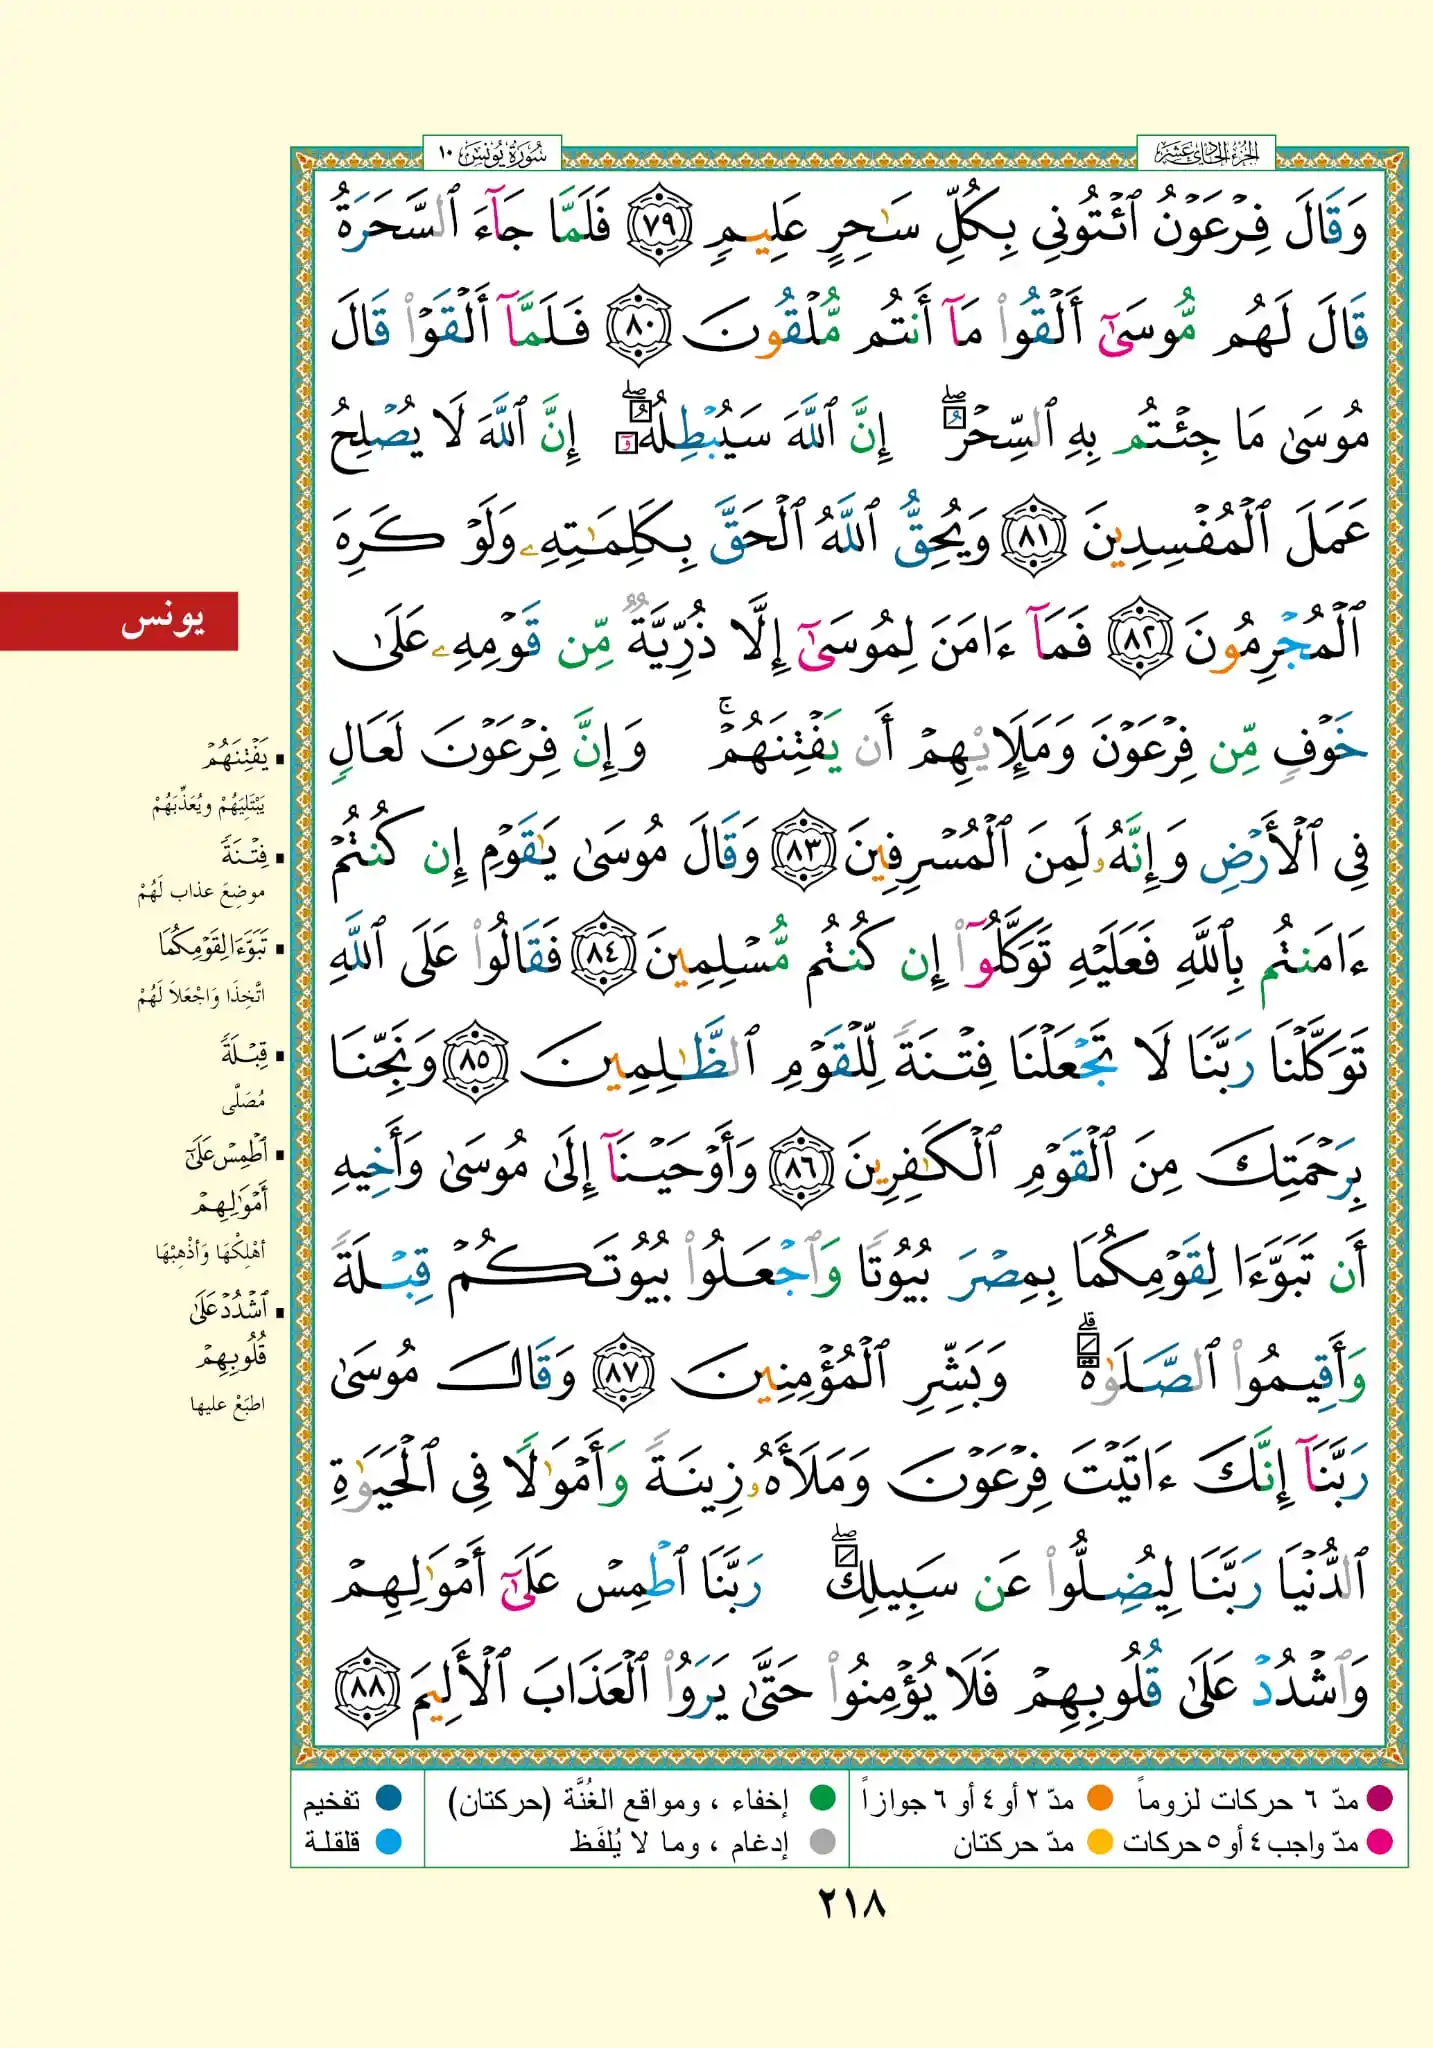 الجزء الحادي عشر
سورة يونس ١٠
وَقَالَ فِرْعَوْنُ ٱئْتُونِي بِكُلِّ سَـٰحِرٍ عَلِيمٍ ٧٩ فَلَمَّا جَآءَ ٱلسَّحَرَةُ
قَالَ لَهُم مُّوسَىٰٓ أَلْقُوا۟ مَآ أَنتُم مُّلْقُونَ ٨٠ فَلَمَّآ أَلْقَوْا۟ قَالَ
مُوسَىٰ مَا جِئْتُم بِهِ ٱلسِّحْرُ ۖ إِنَّ ٱللَّهَ سَيُبْطِلُهُۥٓ ۖ إِنَّ ٱللَّهَ لَا يُصْلِحُ
عَمَلَ ٱلْمُفْسِدِينَ ٨١ وَيُحِقُّ ٱللَّهُ ٱلْحَقَّ بِكَلِمَـٰتِهِۦ وَلَوْ كَرِهَ
ٱلْمُجْرِمُونَ ٨٢ فَمَآ ءَامَنَ لِمُوسَىٰٓ إِلَّا ذُرِّيَّةٌ مِّن قَوْمِهِۦ عَلَىٰ
خَوْفٍ مِّن فِرْعَوْنَ وَمَلَإِي۟هِمْ أَن يَفْتِنَهُمْ ۚ وَإِنَّ فِرْعَوْنَ لَعَالٍ
فِى ٱلْأَرْضِ وَإِنَّهُۥ لَمِنَ ٱلْمُسْرِفِينَ ٨٣ وَقَالَ مُوسَىٰ يَـٰقَوْمِ إِن كُنتُمْ
ءَامَنتُم بِٱللَّهِ فَعَلَيْهِ تَوَكَّلُوٓا۟ إِن كُنتُم مُّسْلِمِينَ ٨٤ فَقَالُوا۟ عَلَى ٱللَّهِ
تَوَكَّلْنَا رَبَّنَا لَا تَجْعَلْنَا فِتْنَةً لِّلْقَوْمِ ٱلظَّـٰلِمِينَ ٨٥ وَنَجِّنَا
بِرَحْمَتِكَ مِنَ ٱلْقَوْمِ ٱلْكَـٰفِرِينَ ٨٦ وَأَوْحَيْنَآ إِلَىٰ مُوسَىٰ وَأَخِيهِ
أَن تَبَوَّءَا لِقَوْمِكُمَا بِمِصْرَ بُيُوتًا وَٱجْعَلُوا۟ بُيُوتَكُمْ قِبْلَةً
وَأَقِيمُوا۟ ٱلصَّلَوٰةَ ۗ وَبَشِّرِ ٱلْمُؤْمِنِينَ ٨٧ وَقَالَ مُوسَىٰ
رَبَّنَآ إِنَّكَ ءَاتَيْتَ فِرْعَوْنَ وَمَلَأَهُۥ زِينَةً وَأَمْوَٰلًا فِى ٱلْحَيَوٰةِ
ٱلدُّنْيَا رَبَّنَا لِيُضِلُّوا۟ عَن سَبِيلِكَ ۖ رَبَّنَا ٱطْمِسْ عَلَىٰٓ أَمْوَٰلِهِمْ
وَٱشْدُدْ عَلَىٰ قُلُوبِهِمْ فَلَا يُؤْمِنُوا۟ حَتَّىٰ يَرَوُا۟ ٱلْعَذَابَ ٱلْأَلِيمَ ٨٨
يونس
يَفْتِنَهُمْ
يَبْتَلِيَهُمْ ويُعَذِّبَهُمْ
فِتْنَةً
موضِعَ عذاب لَهُمْ
تَبَوَّءَا لِقَوْمِكُمَا
اتَّخِذَا وَاجْعَلاَ لَهُمْ
قِبْلَةً
مُصَلَّى
ٱطْمِسْ عَلَىٰٓ
أَمْوَٰلِهِمْ
أهْلِكْهَا وَأذْهِبْهَا
ٱشْدُدْ عَلَىٰ
قُلُوبِهِمْ
اطبَعْ عليها
مدّ ٦ حركات لزوماً
مدّ ٢ أو ٤ أو ٦ جوازاً
إخفاء ، ومواقع الغُنَّة (حركتان)
تفخيم
مدّ واجب ٤ أو ٥ حركات
مدّ حركتان
إدغام ، وما لا يُلفَظ
قلقلة
٢١٨